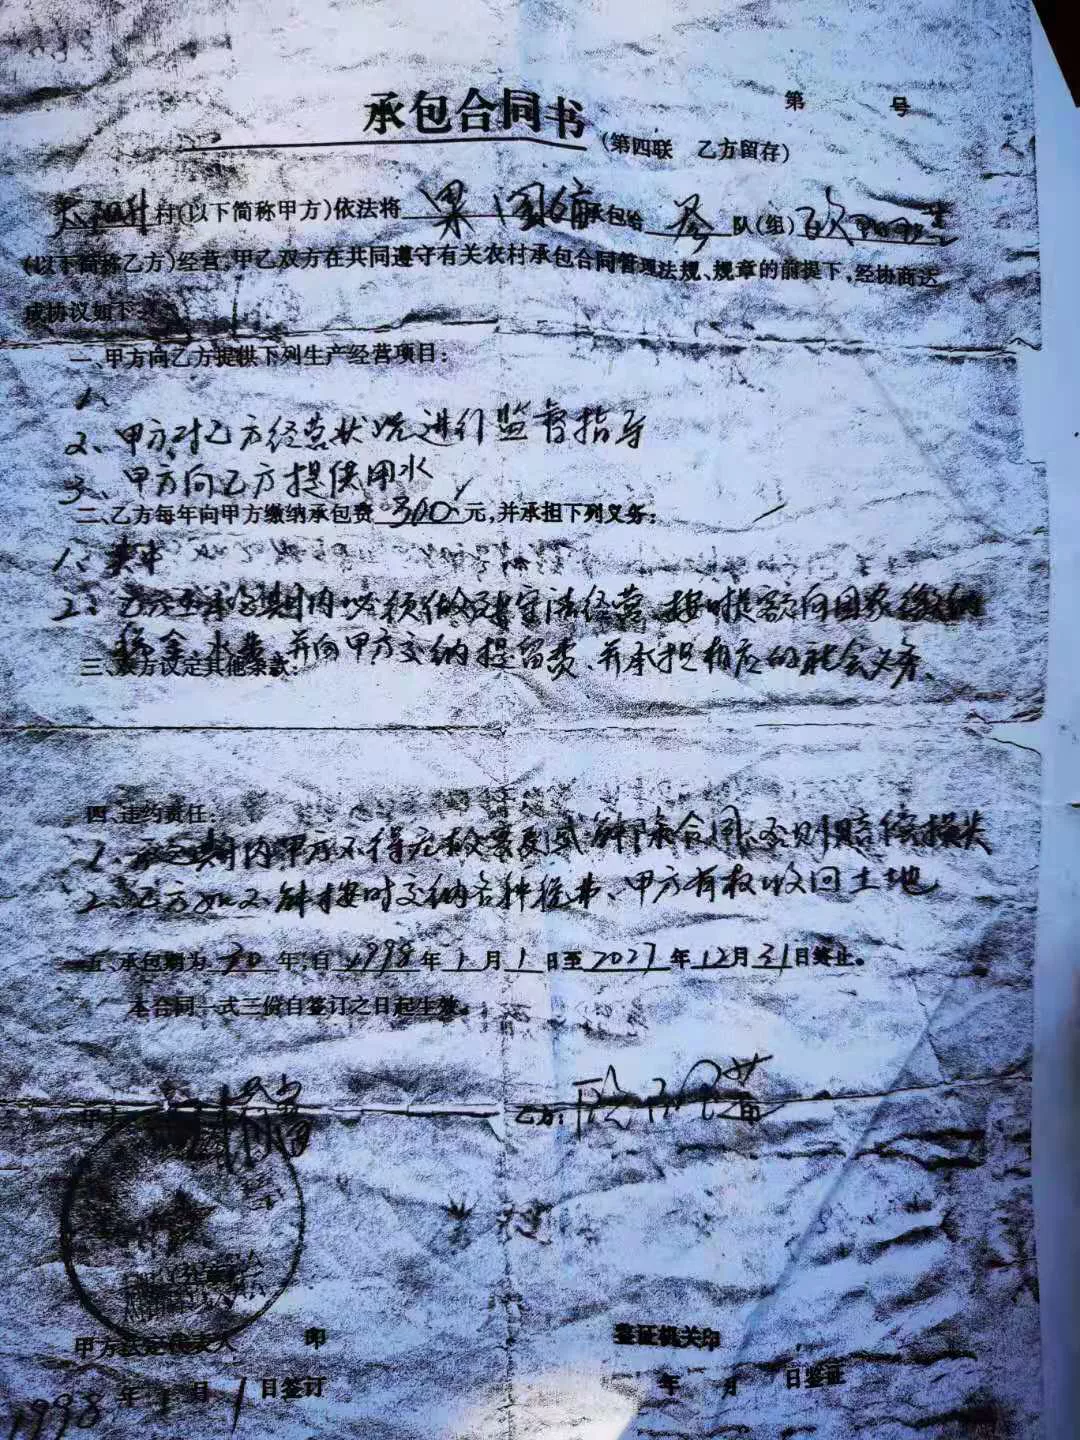 承包合同书
第 号
(第四联 乙方留存)
村(以下简称甲方)依法将 果园 承包给 队(组)
(以下简称乙方)经营,甲乙双方在共同遵守有关农村承包合同管理法规、规章的前提下,经协商达
成协议如下:
一、甲方向乙方提供下列生产经营项目:
1、
2、甲方对乙方经营状况进行监督指导
3、甲方向乙方提供用水
二、乙方每年向甲方缴纳承包费 300 元,并承担下列义务:
1、
2、乙方在承包期内必须做到遵守法经营、按时按额向国家缴纳
税金、水费、并向甲方交纳提留费、并承担相应的社会义务、
三、双方议定其他条款:
四、违约责任:
1、承包期内甲方不得无故变更或解除合同、否则赔偿损失
2、乙方如不能按时交纳各种税费、甲方有权收回土地
五、承包期为 30 年,自 1998 年 1 月 1 日至 2027 年 12 月 31 日终止。
本合同一式三份自签订之日起生效。
甲方
乙方:
甲方法定代表人 印
鉴证机关印
1998 年 1 月 1 日签订
年 月 日鉴证